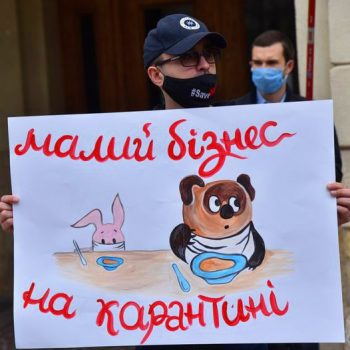 #Save
малий бізнес
на карантині